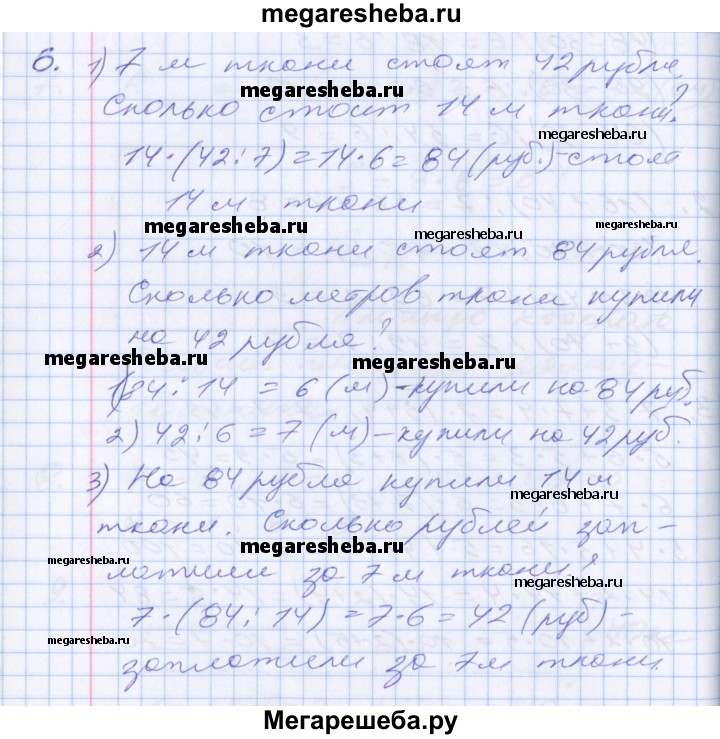 megaresheba.ru
6. 1) 7 м ткани стоят 42 рубля.
Сколько стоит 14 м ткани?
megaresheba.ru
megaresheba.ru
14·(42:7)=14·6=84(руб.)-стоят
14 м ткани
megaresheba.ru
megaresheba.ru
megaresheba.ru
2) 14 м ткани стоят 84 рубля.
Сколько метров ткани купили
на 42 рубля?
megaresheba.ru
megaresheba.ru
1)84:14 = 6 (м)-купили на 84 руб.
2) 42:6=7 (м)-купили на 42 руб.
3) На 84 рубля купили 14 м
megaresheba.ru
ткани. Сколько рублей зап-
megaresheba.ru
megaresheba.ru
латили за 7 м ткани?
megaresheba.ru
7·(84:14)=7·6=42 (руб)-
megaresheba.ru
заплатили за 7м ткани.
Мегарешеба.ру